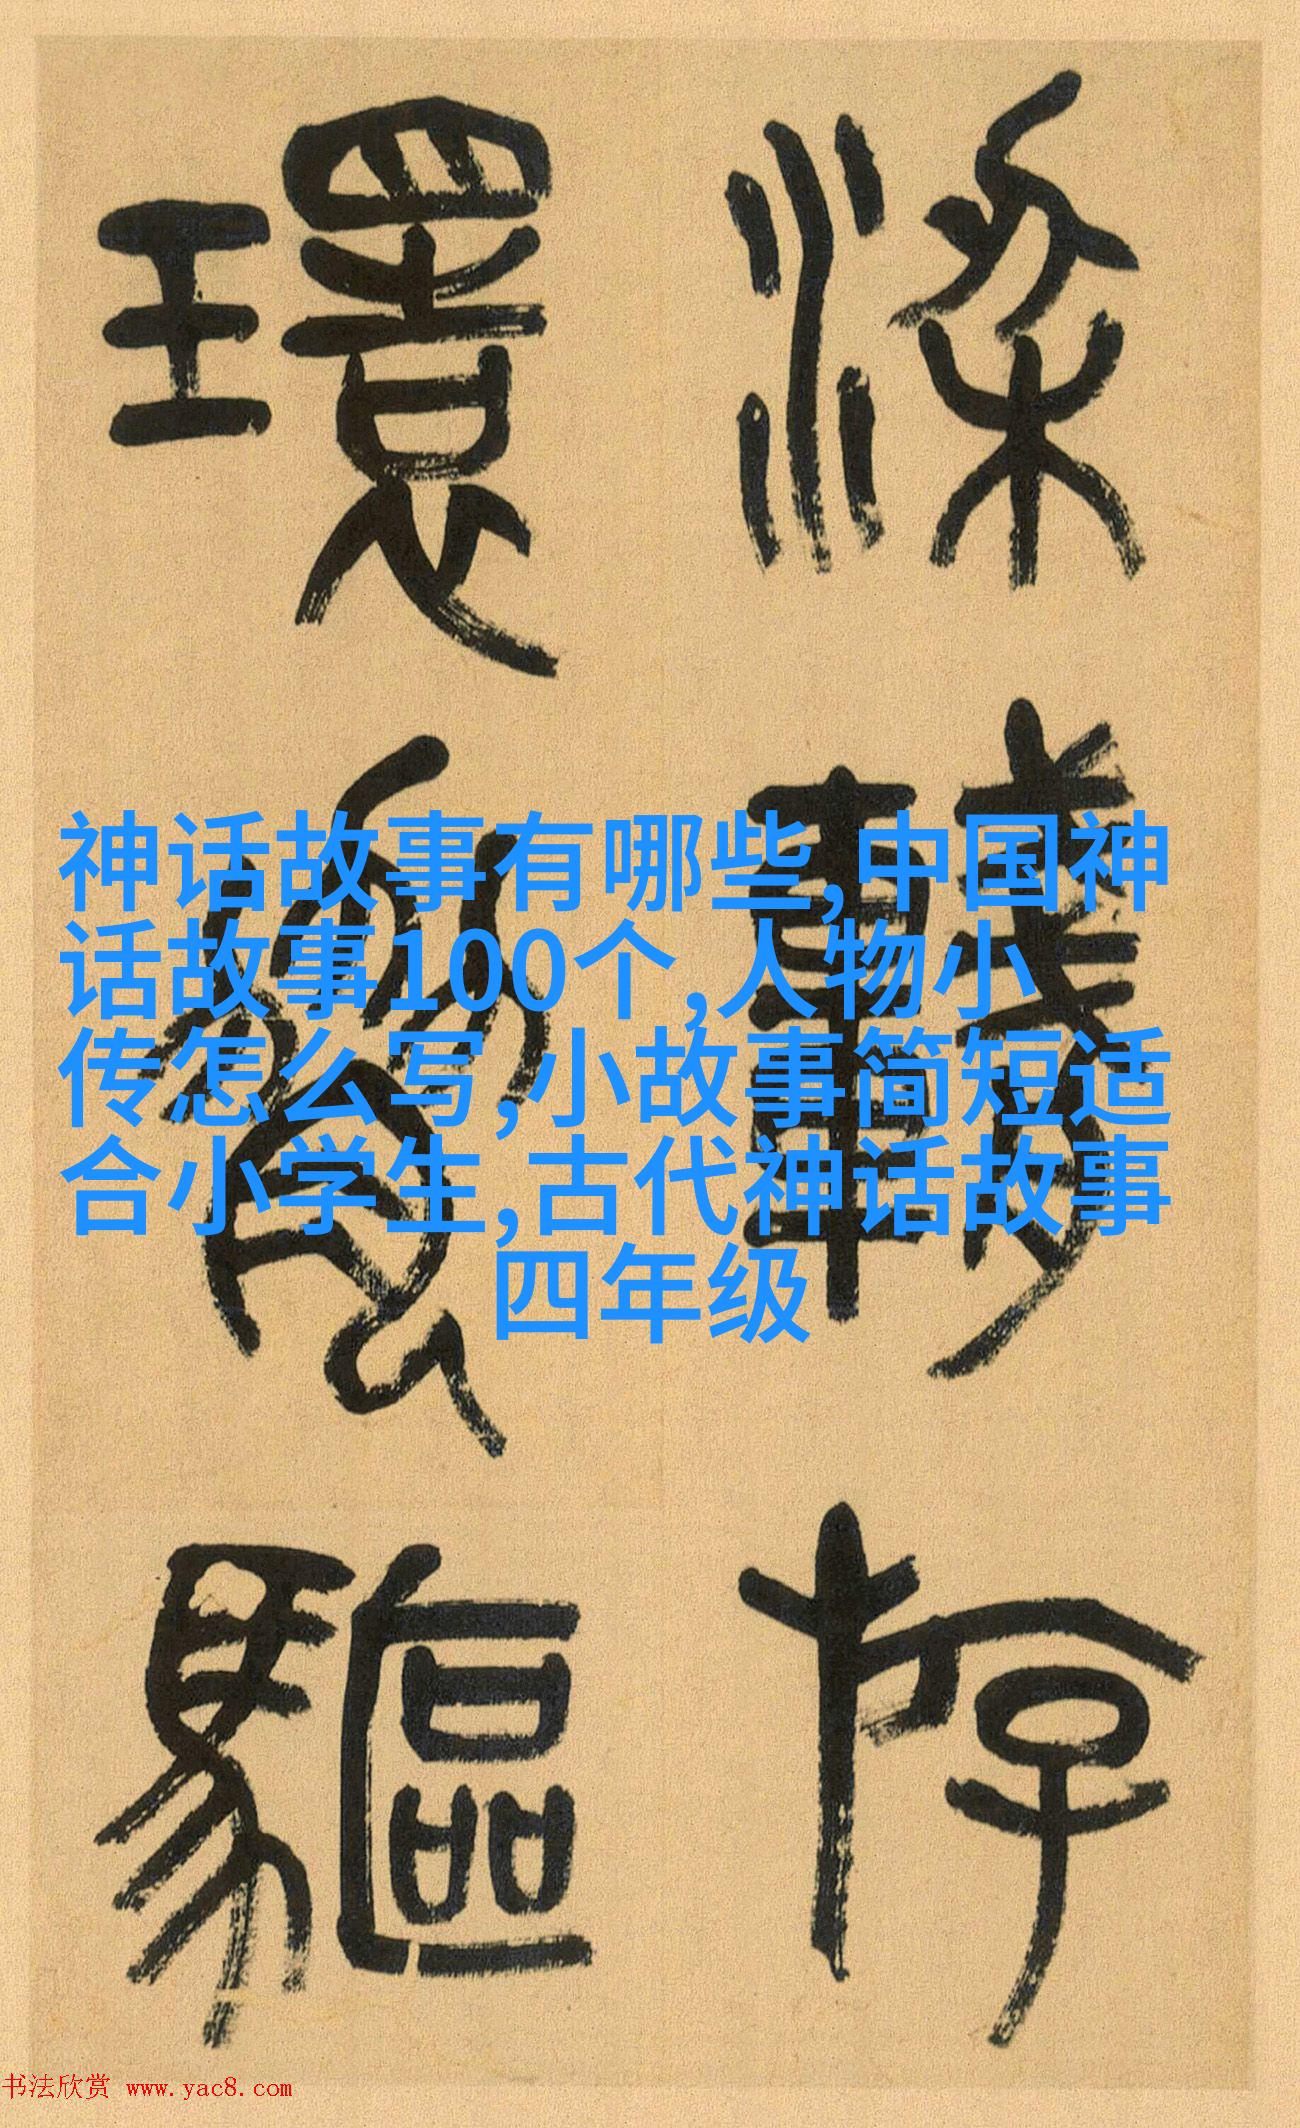 神话故事有哪些,中国神
话故事100个,人物小
传怎么写,小故事简短适
合小学生,古代神话故事
四年级
環
驅
存
书法欣赏 www.yac8.com